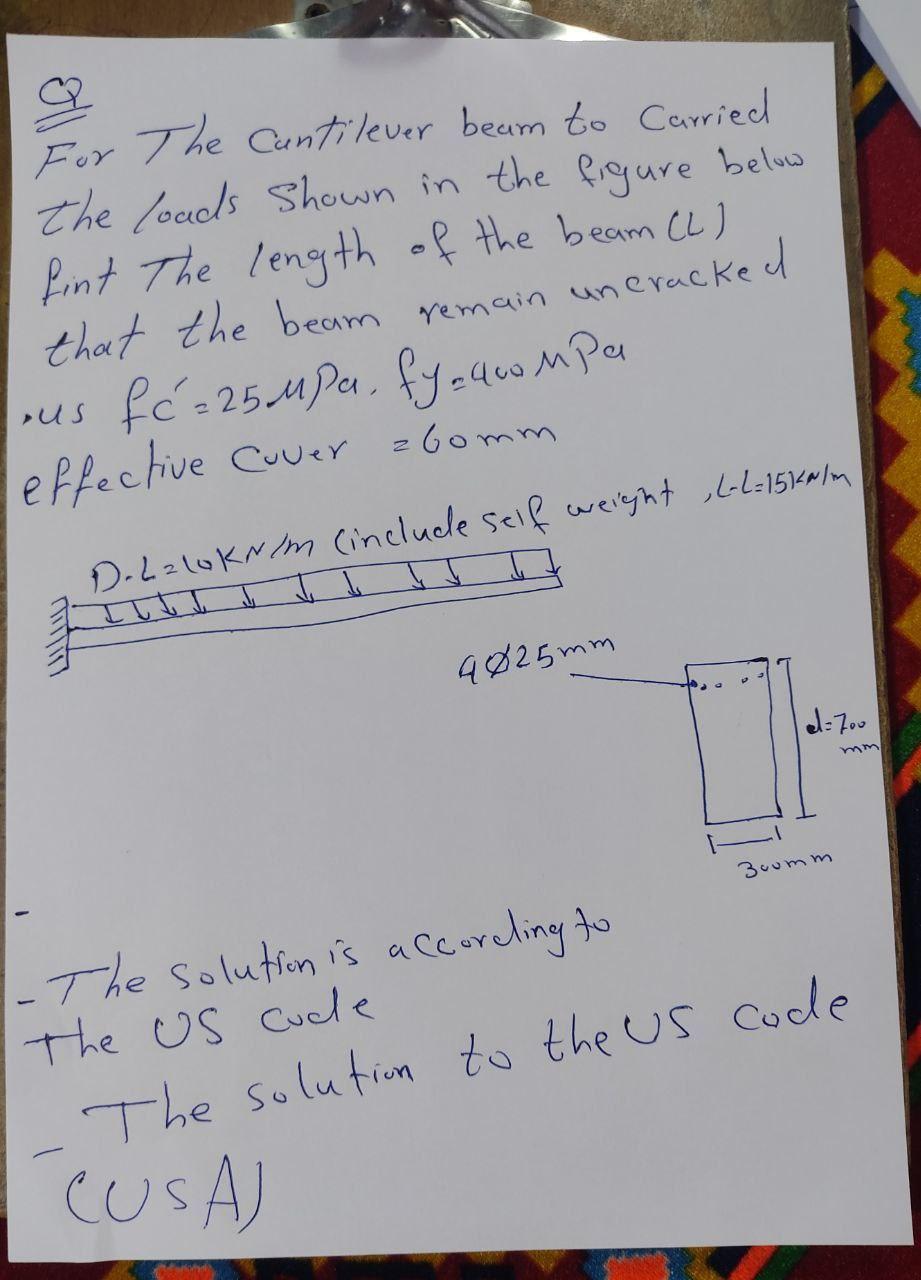 Q
For The Cantilever beam to Carried
the loads Shown in the figure below
fint The length of the beam (L)
that the beam remain uncracked
.us fć=25MPa, fy=400MPa
effective Cover =60mm
D.L=10KN/m (include self weight , L.L=15KN/m
4Ø25mm
d=700
mm
300mm
-
- The Solution is according to
The US Code
- The Solution to the US Code
(USA)